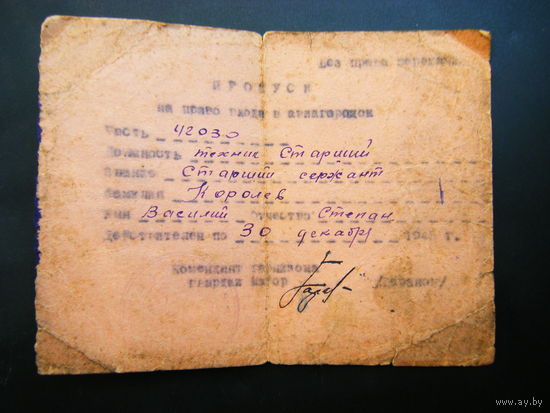 Без права
ПРОПУСК
на право входа в авиагородок
Часть 42030
Должность техник Старший
Звание Старший сержант
Фамилия Королев
Имя Василий Отчество Степан
Действителен по 30 декабря 194 г.
Комендант гарнизона
гвардии майор
www.ay.by